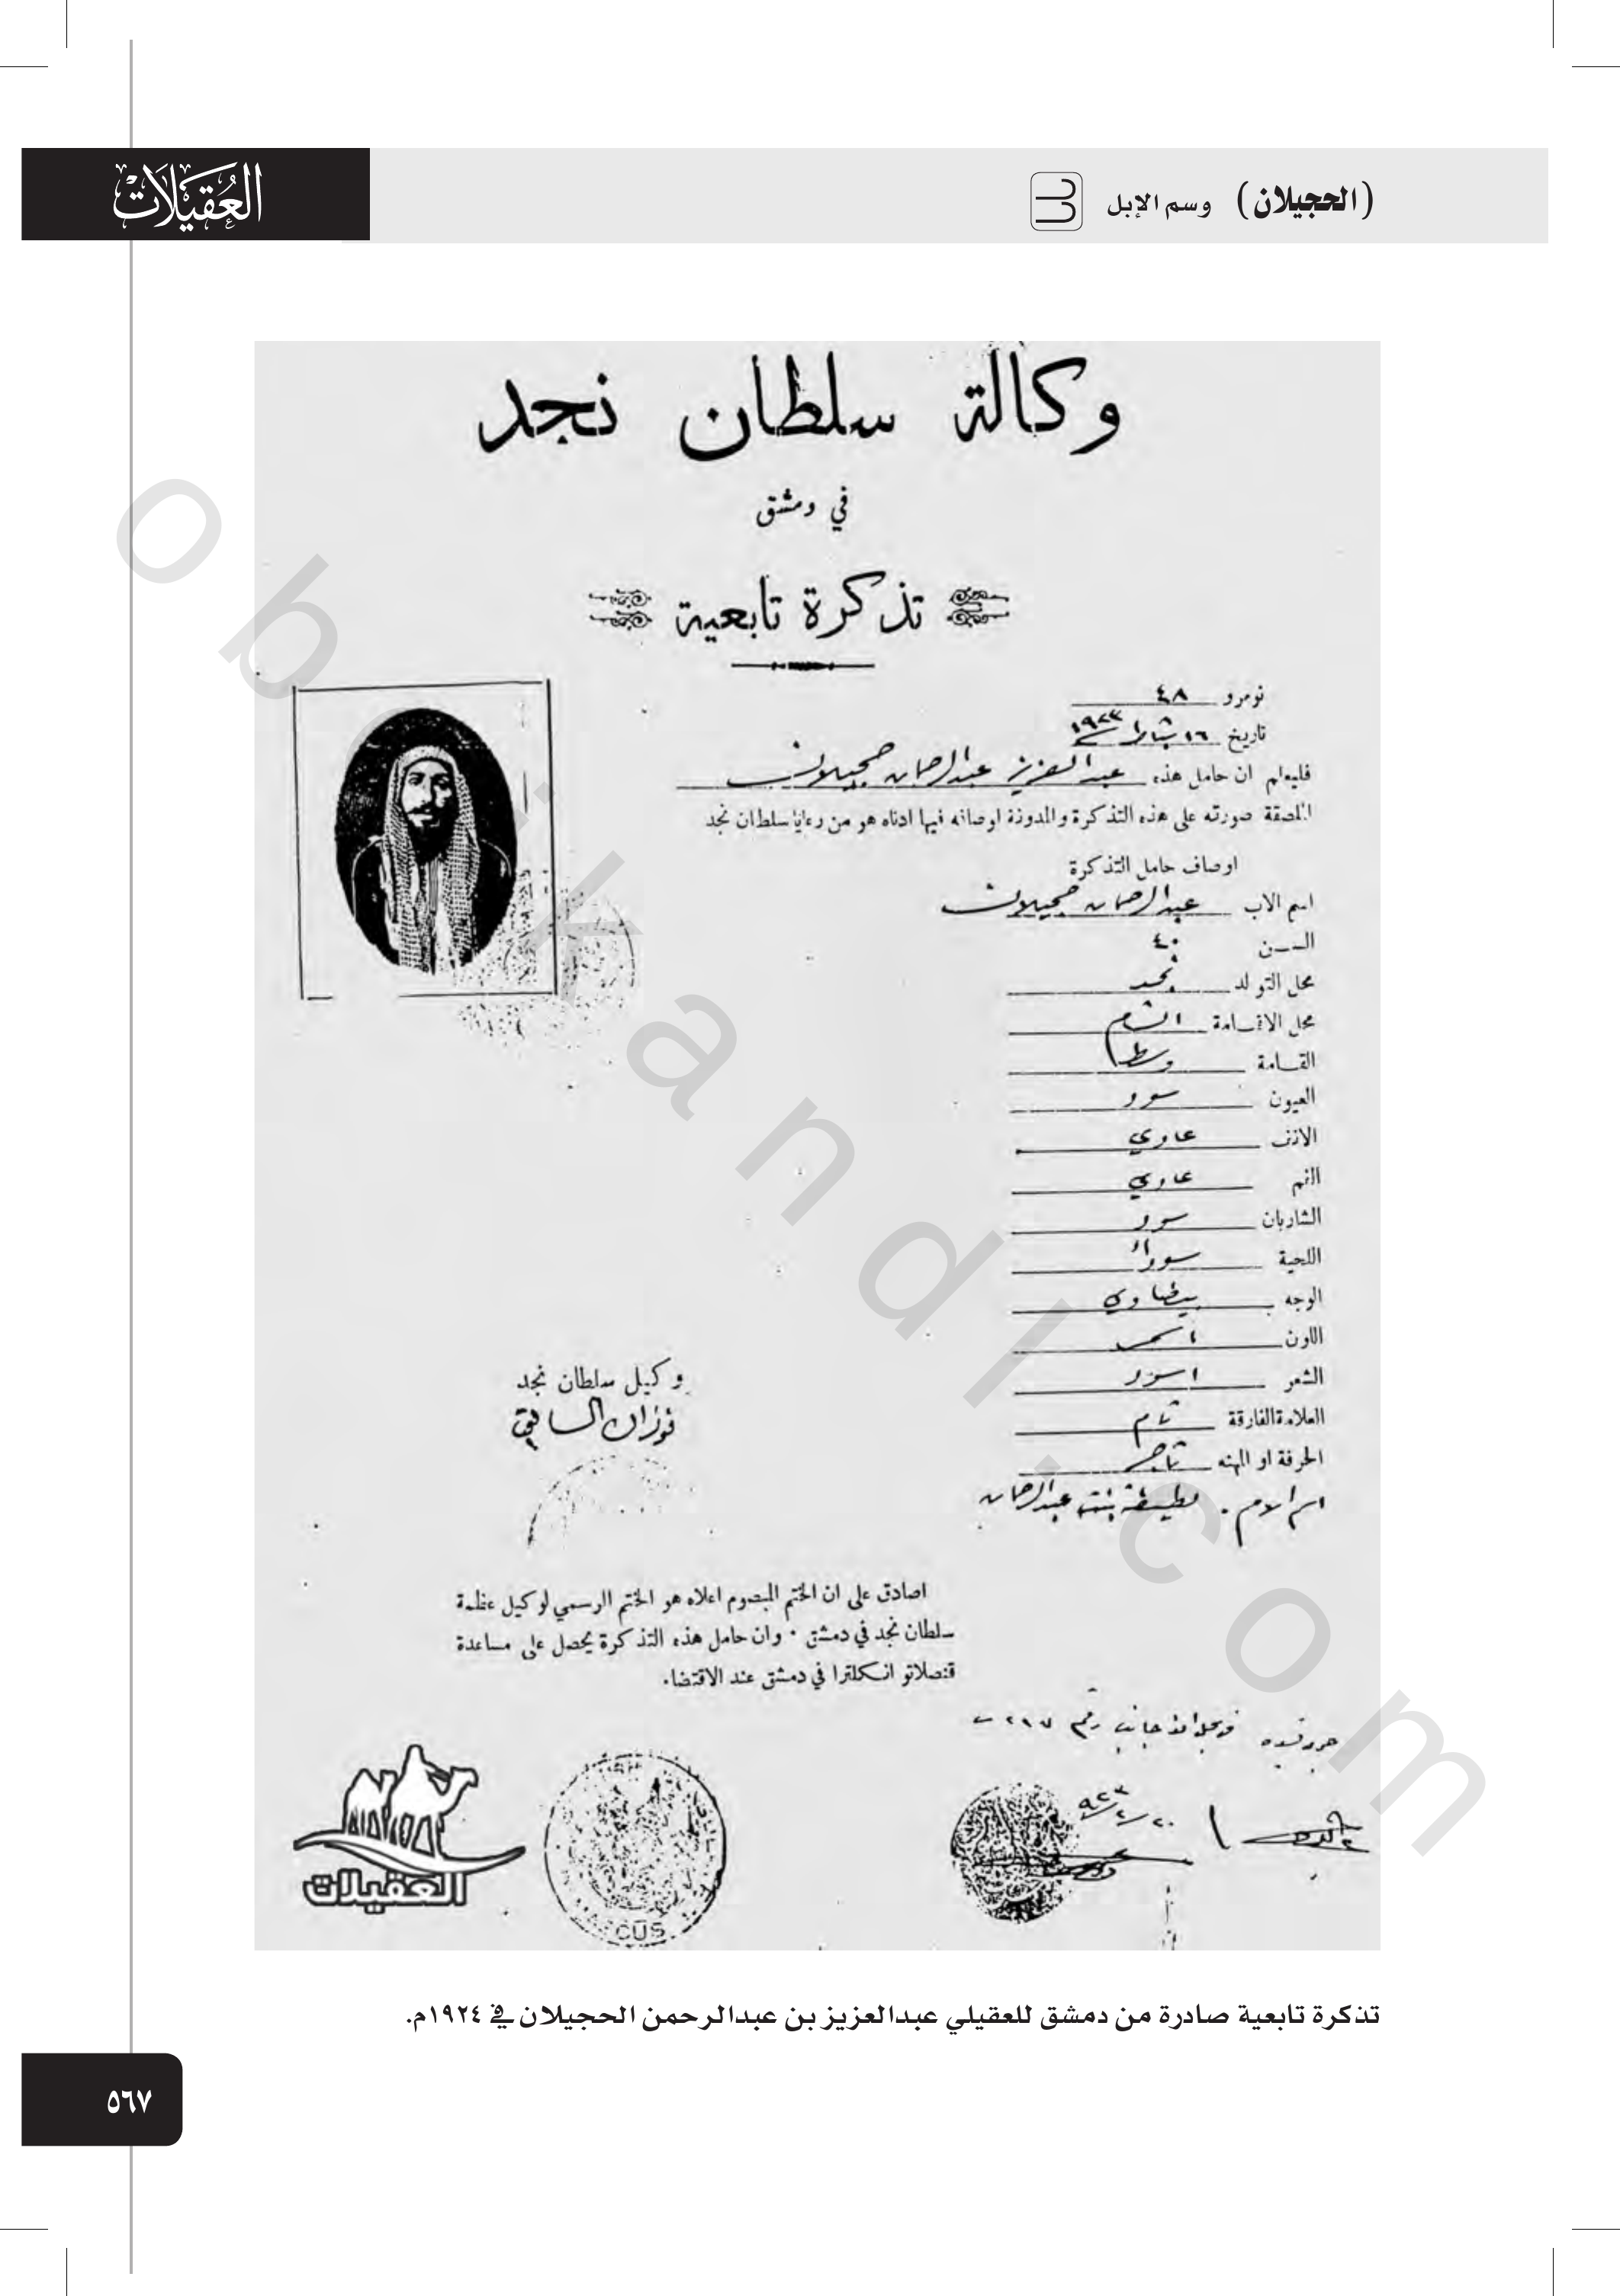 العُقيلات
(الحجيلان) وسم الإبل
وكالة سلطان نجد
في دمشق
تذكرة تابعية
نومرو ٤٨
تاريخ ١٦ شباط ١٩٢٣
فليعلم ان حامل هذه عبد العزيز عبد الرحمان حجيلان
الملصقة صورته على هذه التذكرة والمدونة اوصافه فيها ادناه هو من رعايا سلطان نجد
اوصاف حامل التذكرة
اسم الاب عبد الرحمان حجيلان
الســن ٤٠
محل التولد نجد
محل الاقـامة الشام
القـامة وسط
العيون سود
الانف عادي
الفم عادي
الشاربان سود
اللحية سوداء
الوجه بيضاوي
اللون اسمر
الشعر اسود
العلامة الفارقة تام
الحرفة او المهنه تاجر
اسم الام . لطيفة بنت عبد الرحمان
وكيل سلطان نجد
فوزان السابق
اصادق على ان الختم المبصوم اعلاه هو الختم الرسمي لوكيل عظمة
سلطان نجد في دمشق · وان حامل هذه التذكرة يحصل على مساعدة
قنصلاتو انكلترا في دمشق عند الاقتضا.
جانب رقم ٢٩٧
٢٠/٢/٩٢٣
CUS
العقيلات
تذكرة تابعية صادرة من دمشق للعقيلي عبدالعزيز بن عبدالرحمن الحجيلان في ١٩٢٤م.
٥٦٧
obeikandl.com